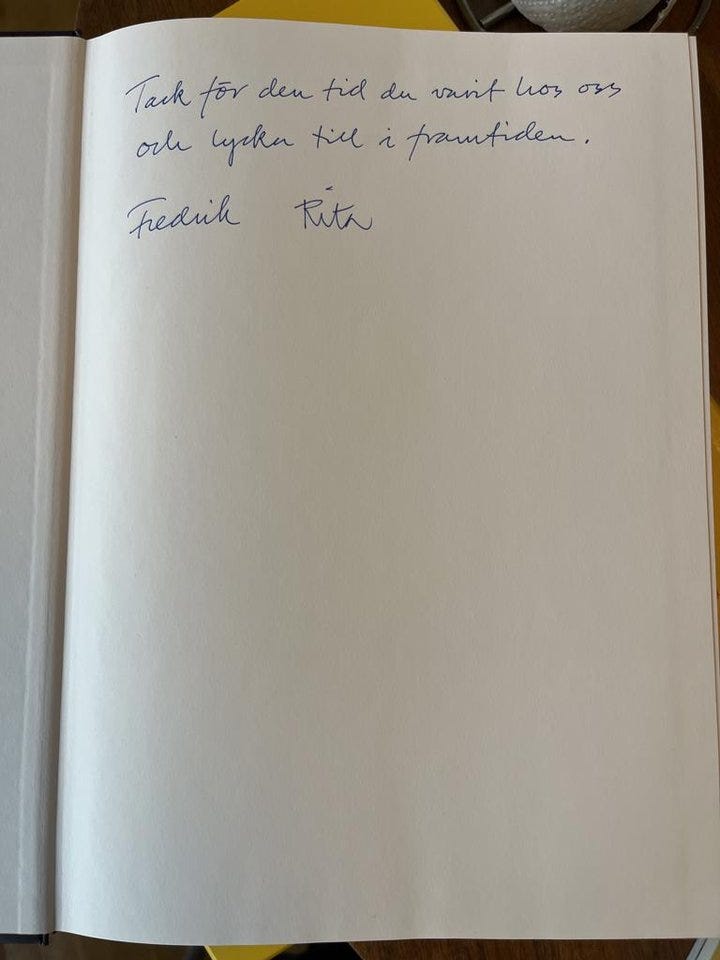 Tack för den tid du varit hos oss
och lycka till i framtiden.
Fredrik Rita